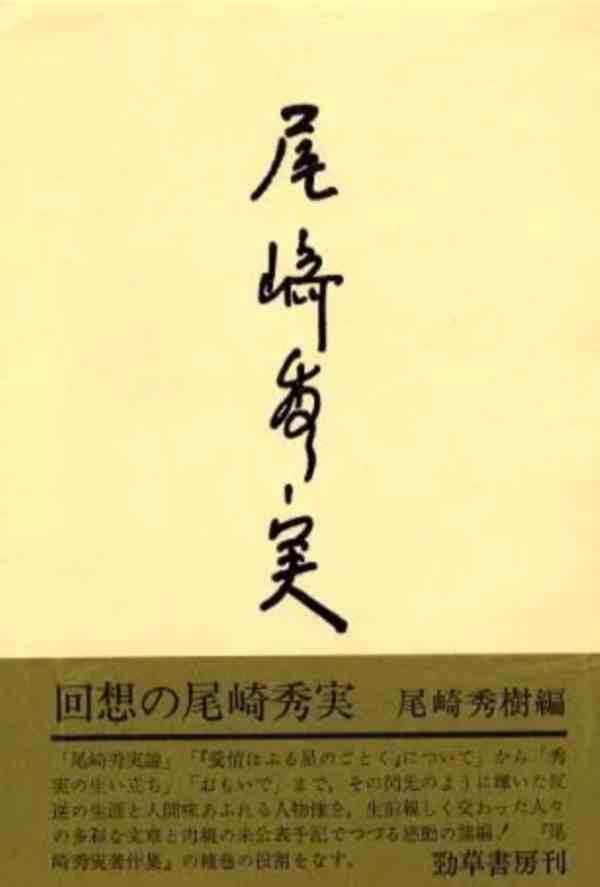 尾崎秀実
回想の尾崎秀実 尾崎秀樹編
「尾崎秀実論」「『愛情はふる星のごとく』について」から「秀
実の生い立ち」「おもいで」まで、その閃光のように輝いた反
逆の生涯と人間味あふれる人物像を、生前親しく交わった人々
の多彩な文章と肉親の未公表手記でつづる感動の諸編！『尾
崎秀実著作集』の補巻の役割をなす。 勁草書房刊